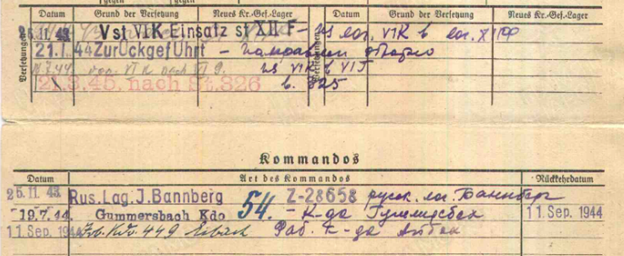 Datum Grund der Versetzung Neues Kr.-Gef.-Lager Datum Grund der Versetzung Neues Kr.-Gef.-Lager
25.11.43 Vst VIK Einsatz st XII F – из лаг. VIK в лаг. XIIF
21.1.44 Zurückgeführt – направлен обратно
nach VI J. из VIK в VIJ
21.3.45. nach St. 326 в. 325
Versetzungen
Kommandos
Datum Art des Kommandos Rückkehrdatum
25.11.43 Rus. Lag. J. Bannberg Z-28658 русск. лаг. Баннберг
19.7.44. Gummersbach Kdo 54. – К-да Гуммерсбах 11. Sep. 1944
11. Sep. 1944 Arb. Kdo 449 Раб. К-да